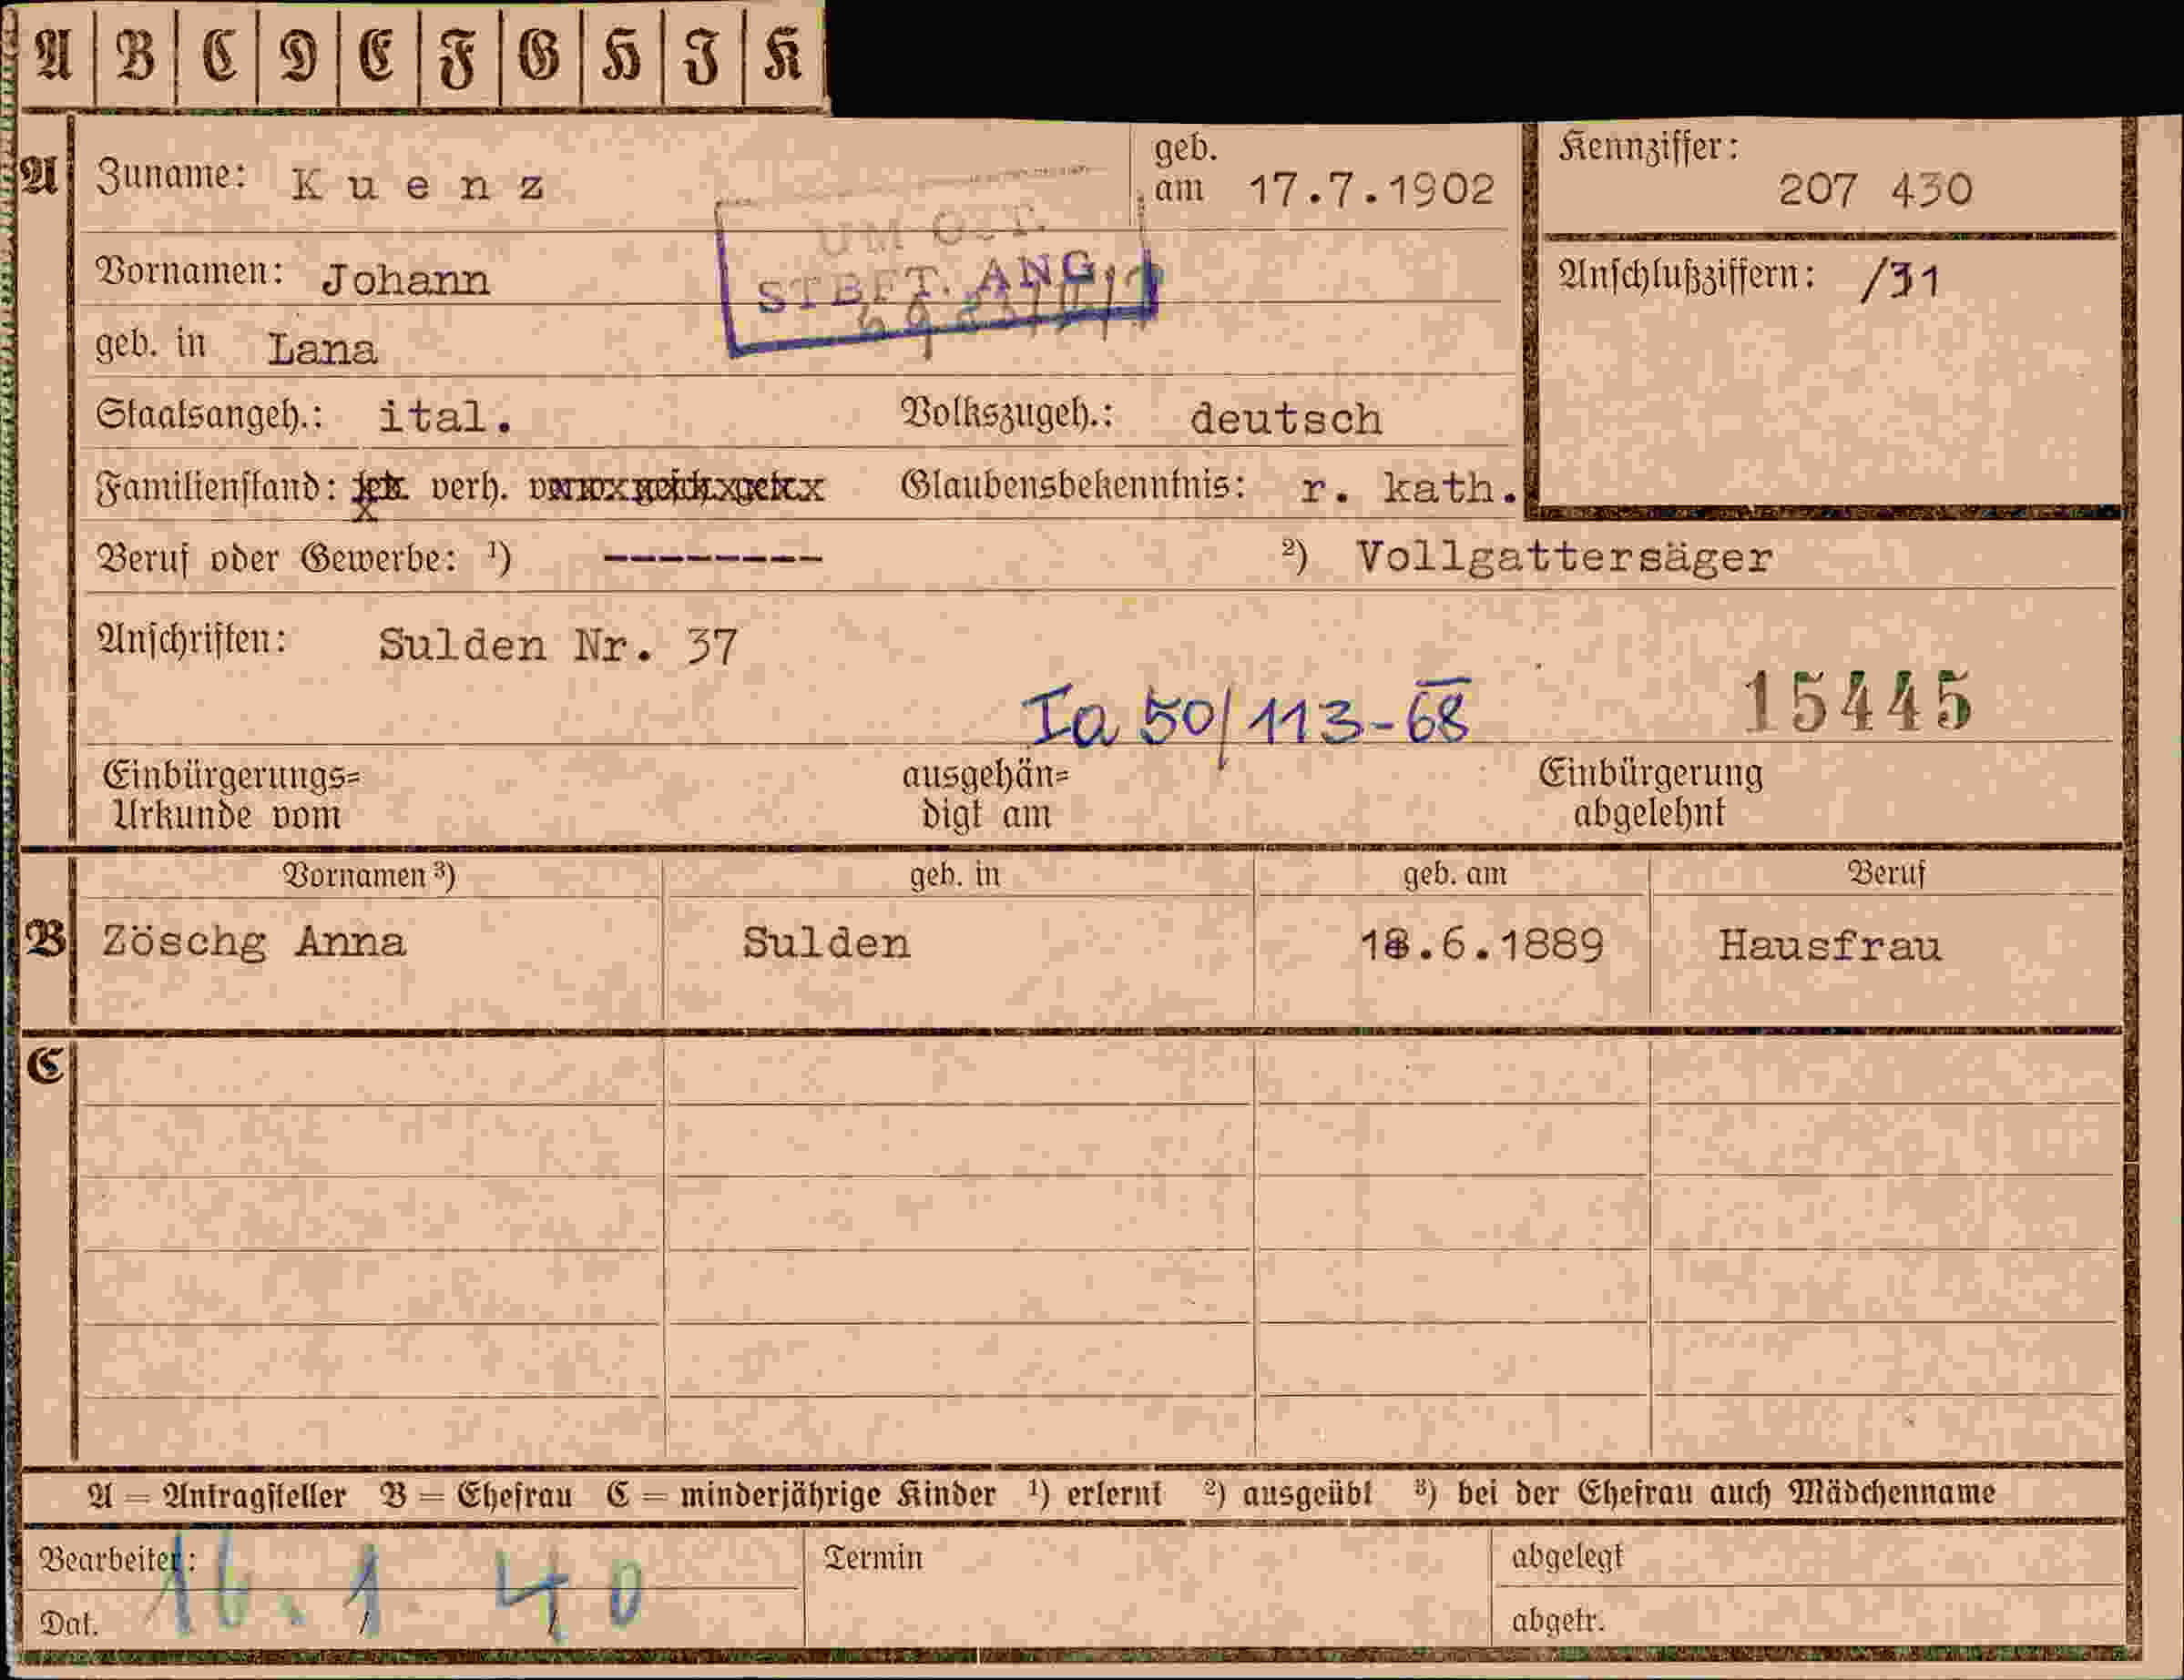 A B C D E F G H I K
A Zuname: Kuenz geb. am 17.7.1902 Kennziffer: 207 430
Vornamen: Johann Anschlußziffern: /31
STBFT. ANG.
geb. in Lana
Staatsangeh.: ital. Volkszugeh.: deutsch
Familienstand: verh. Glaubensbekenntnis: r. kath.
Beruf oder Gewerbe: ¹) -------- ²) Vollgattersäger
Anschriften: Sulden Nr. 37
Ia 50/113-68 15445
Einbürgerungs= ausgehän= Einbürgerung
Urkunde vom digt am abgelehnt
Vornamen ³) geb. in geb. am Beruf
B Zöschg Anna Sulden .6.1889 Hausfrau
C
A = Antragsteller B = Ehefrau C = minderjährige Kinder ¹) erlernt ²) ausgeübt ³) bei der Ehefrau auch Mädchenname
Bearbeiter: Termin abgelegt
16. 1 40
Dat. / / abgetr.